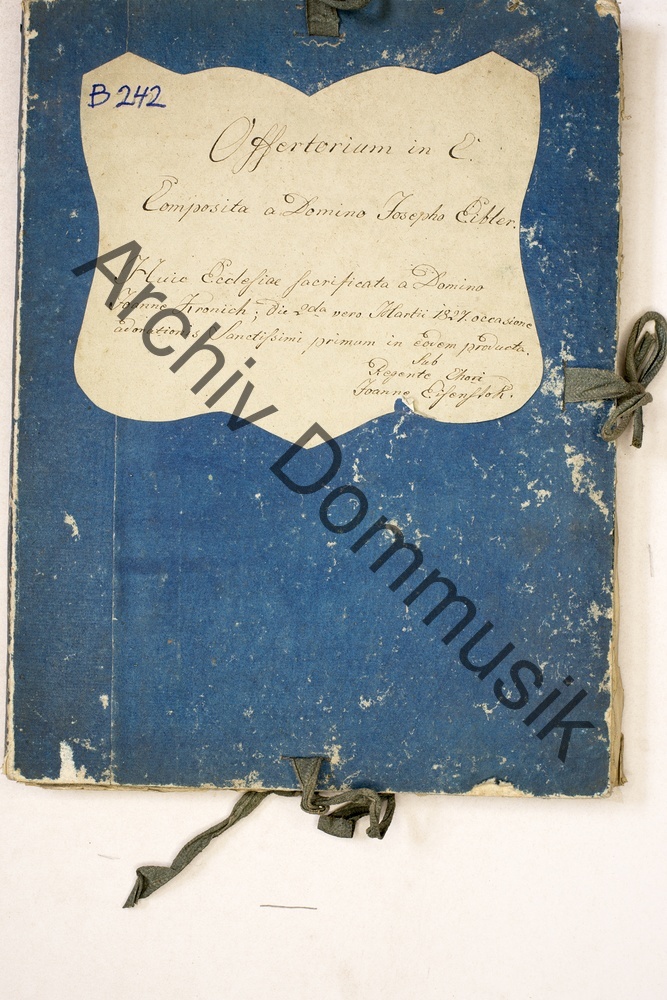 B 242
Offertorium in C.
Composita a Domino Josepho Eibler.
Huic Ecclesiae sacrificata a Domino
Joanne Kronich; Die 2da vero Martii 1827. occasione
adorationis Sanctissimi primum in eodem producta.
Sub
Regente Chori
Joanne Eisenstok.
Archiv Dommusik